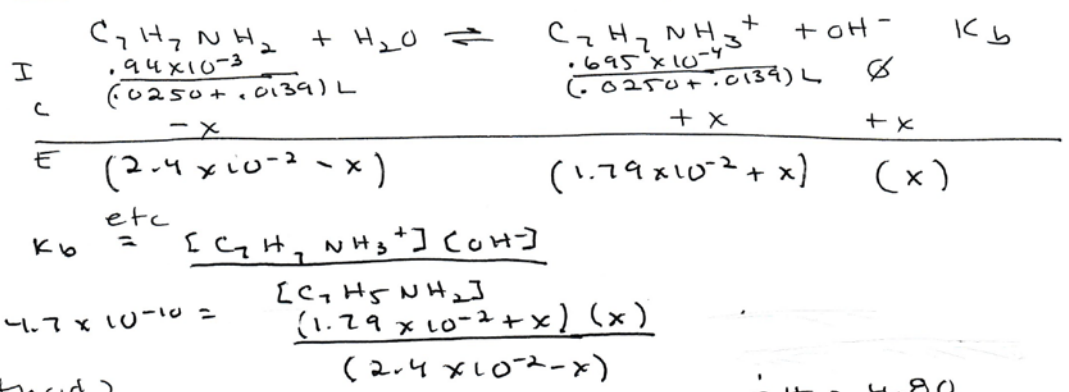 C₇H₇NH₂ + H₂O ⇌ C₇H₇NH₃⁺ + OH⁻ Kb
I .94×10⁻³ / (.0250+.0139)L .695×10⁻⁴³ / (.0250+.0139)L ∅
C -x +x +x
E (2.4×10⁻² - x) (1.79×10⁻² + x) (x)
etc
Kb = [C₇H₇NH₃⁺][OH⁻] / [C₇H5NH₂]
4.7×10⁻¹⁰ = (1.79×10⁻² + x)(x) / (2.4×10⁻² - x)